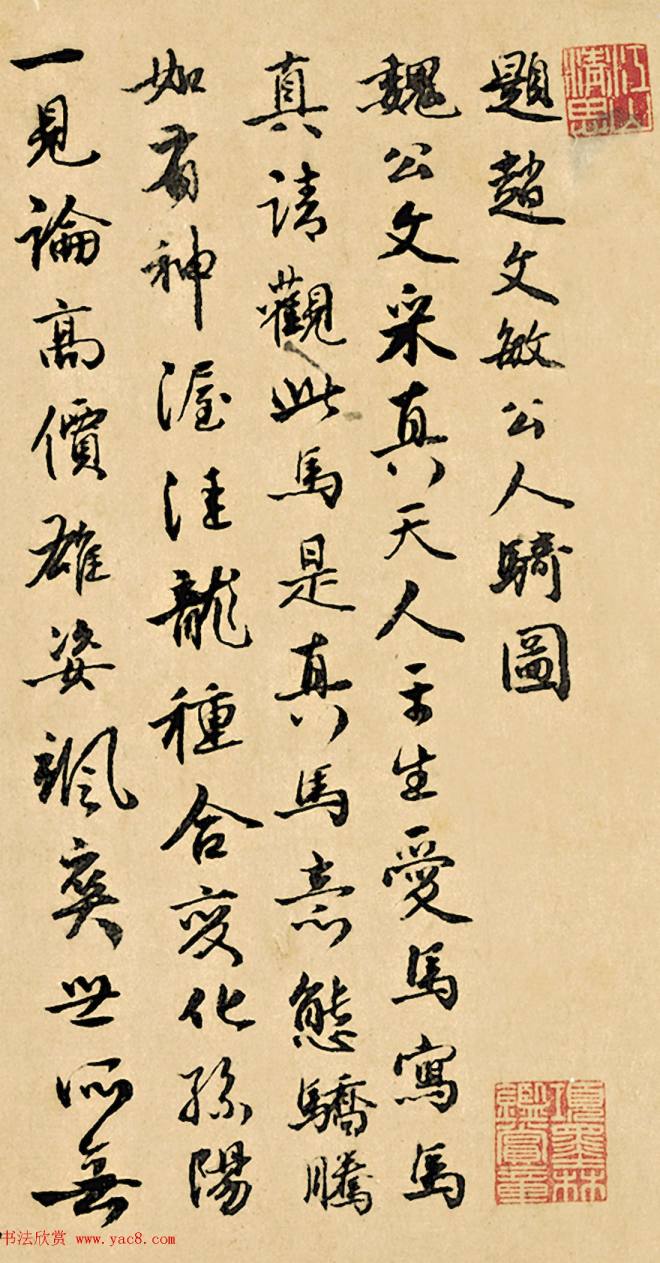 題趙文敏公人騎圖
魏公文采真天人平生愛馬寫馬
真請觀此馬是真馬意態驕騰
如有神渥洼龍種合變化孫陽
一見論高價雄姿颯爽世所無
江山清思
項墨林鑑賞章
书法欣赏 www.yac8.com